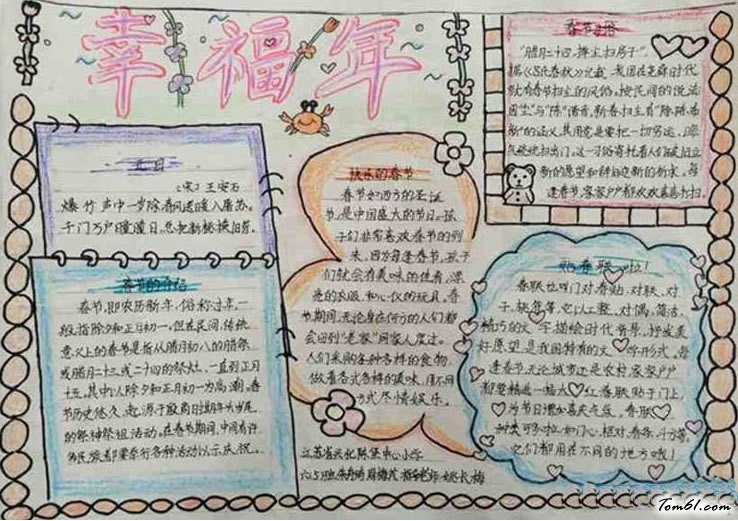 幸福年
元日
(宋)王安石
爆竹声中一岁除,春风送暖入屠苏。
千门万户曈曈日,总把新桃换旧符。
春节的介绍
春节,即农历新年,俗称过年,一
般指除夕和正月初一。但在民间,传统
意义上的春节是指从腊月初八的腊祭
或腊月二十三或二十四的祭灶,一直到正月
十五,其中以除夕和正月初一为高潮。春
节历史悠久,起源于殷商时期年头岁尾
的祭神祭祖活动。在春节期间,中国
民族都要举行各种活动以示庆祝。
快乐的春节
春节如西方的圣诞
节,是中国盛大的节日。孩
子们非常喜欢春节的到
来,因为每逢春节,孩子
们就会有美味的佳肴,漂
亮的衣服,和心仪的玩具。春
节期间,无论身在何方的人们都
会回到"老家"同家人度过。
人们采购各种各样的食物,
做着各式各样的美味,用不同
方式尽情娱乐。
春节
"腊月二十四,掸尘扫房子",
据《吕氏春秋》记载,我国在尧舜时代
就有春节扫尘的风俗。按民间的说法:
因"尘"与"陈"谐音,新春扫尘有"除陈布
新"的涵义,其用意是要把一切穷运、
气统统扫出门。这一习俗寄托着人们破旧立
新的愿望和辞旧迎新的祈求。每
逢春节,家家户户都欢欢喜喜打扫
贴春联
春联也叫门对、春贴、对联、对
子、桃符等,它以工整、对偶、简洁、
精巧的文字描绘时代背景,抒发美
好愿望,是我国特有的文学形式。每
逢春节,无论城市还是农村,家家户户
都要精选一幅大红春联贴于门上,
为节日增加喜庆气氛。春联
种类可多啦,如门心、框对、春条、斗方等。
它们都用在不同的地方哦!
江苏省兴化陈堡中心小学
六(5)班
Tom61.com